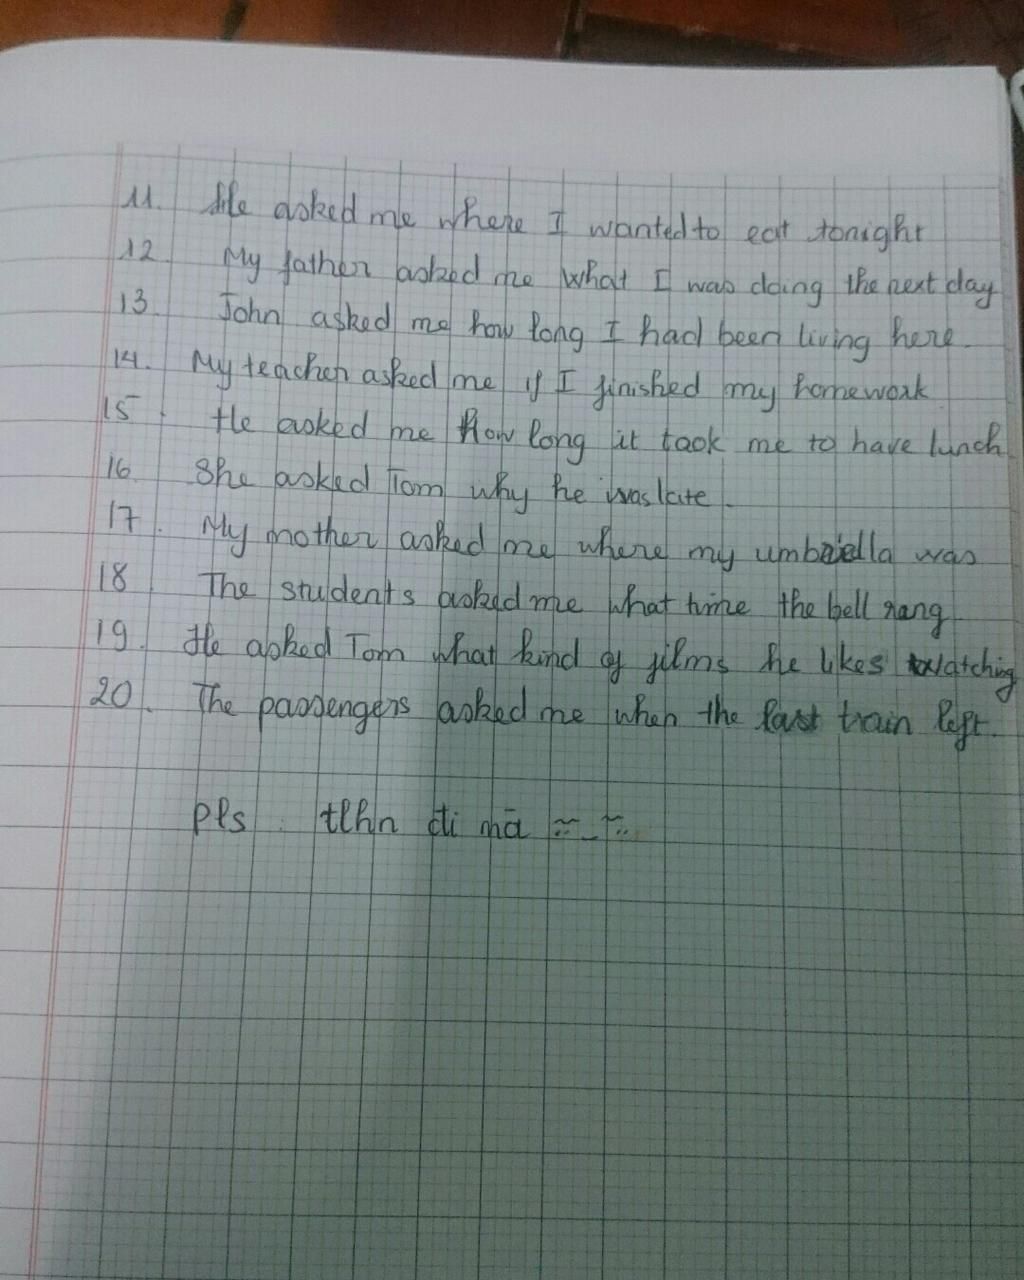 11. He asked me where I wanted to eat tonight
12. My father asked me what I was doing the next day
13. John asked me how long I had been living here.
14. My teacher asked me if I finished my homework
15. He asked me How long it took me to have lunch
16. She asked Tom why he was late.
17. My mother asked me where my umbrella was
18. The students asked me what time the bell rang
19. He asked Tom what kind of films he likes watching
20. The passengers asked me when the last train left.
pls tlhn đi mà